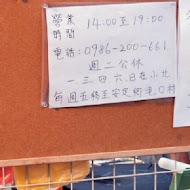 營業時間 14:00至19:00
電話:0986-200-661
週二公休
一三四六日在小北
每週五移至安定鄉